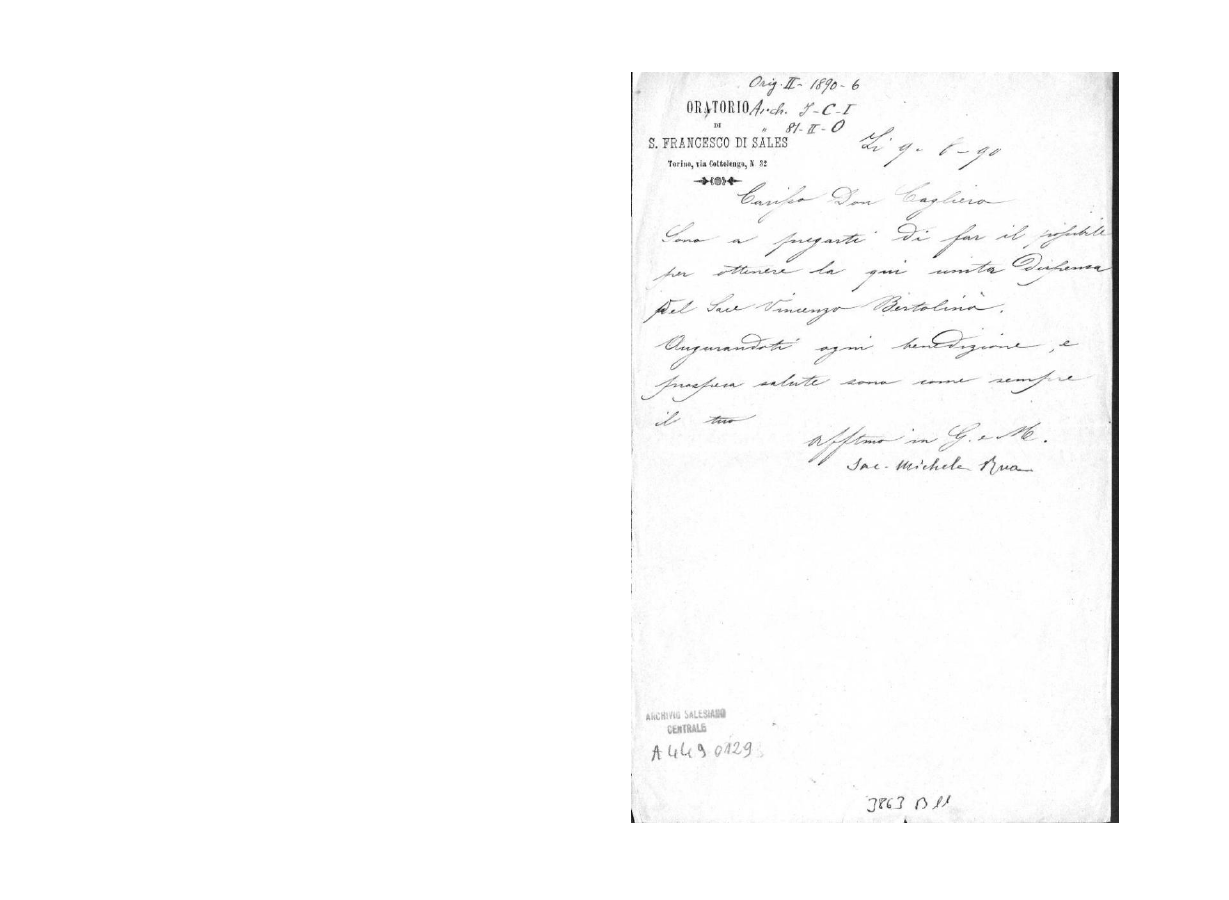 Orig. II - 1890 - 6
ORATORIO Arch. S-C-I
DI " 81-II-O
S. FRANCESCO DI SALES
Torino, via Cottolengo, N 32
Li 9 - 6 - 90
Cariſso Don Cagliero
Sono a pregarti di far il poſsibile
per ottenere la qui unita Dispensa
del Sace Vincenzo Bertolino.
Augurandoti ogni benedizione, e
prospera salute sono come sempre
il tuo
afftmo in G. e M.
Sac. Michele Rua
ARCHIVIO SALESIANO
CENTRALE
A 449 0129
3863